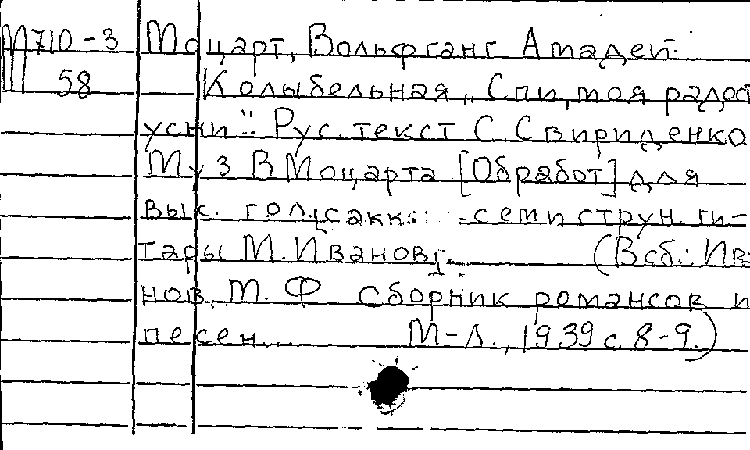 М710-3 Моцарт, Вольфганг Амадей.
58 Колыбельная „Спи, моя радос
усни". Рус. текст С. Свириденко
Муз В Моцарта [Обработ] для
выс. гол, с акк. семиструн. ги-
тары М. Иванову. (В сб.: Ива
нов, М. Ф Сборник романсов и
песен... М-Л., 1939 с. 8-9.)